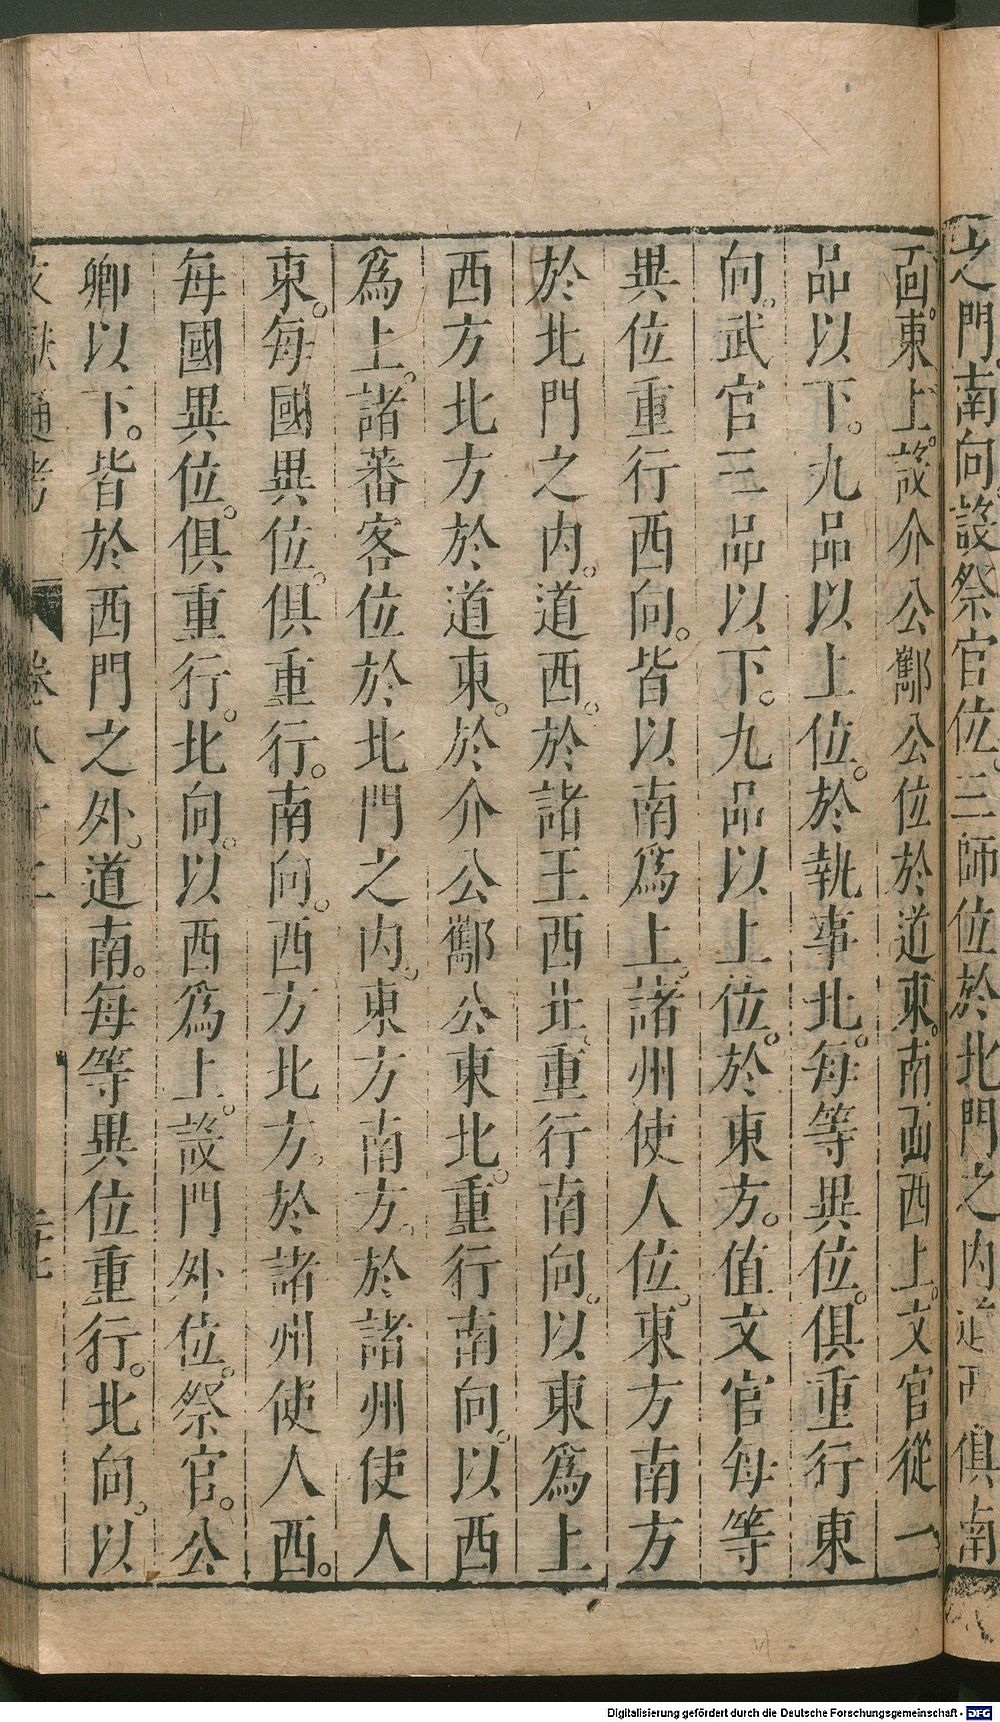 之門南向設祭官位。三師位於北門之內道西俱南
面。東上。設介公酅公位於道東。南面西上。文官從一
品以下。九品以上位。於執事北。每等異位。俱重行東
向。武官三品以下。九品以上位。於東方。值文官每等
異位重行西向。皆以南爲上。諸州使人位。東方南方
於北門之內。道西。於諸王西北、重行南向。以東爲上
西方北方於道東。於介公酅公東北。重行南向。以西
爲上。諸蕃客位於北門之內。東方南方。於諸州使人
東。每國異位。俱重行。南向。西方北方。於諸州使人西。
每國異位。俱重行。北向。以西爲上。設門外位。祭官。公
卿以下。皆於西門之外。道南。每等異位重行。北向。以
文獻通考 卷八十
Digitalisierung gefördert durch die Deutsche Forschungsgemeinschaft - DFG